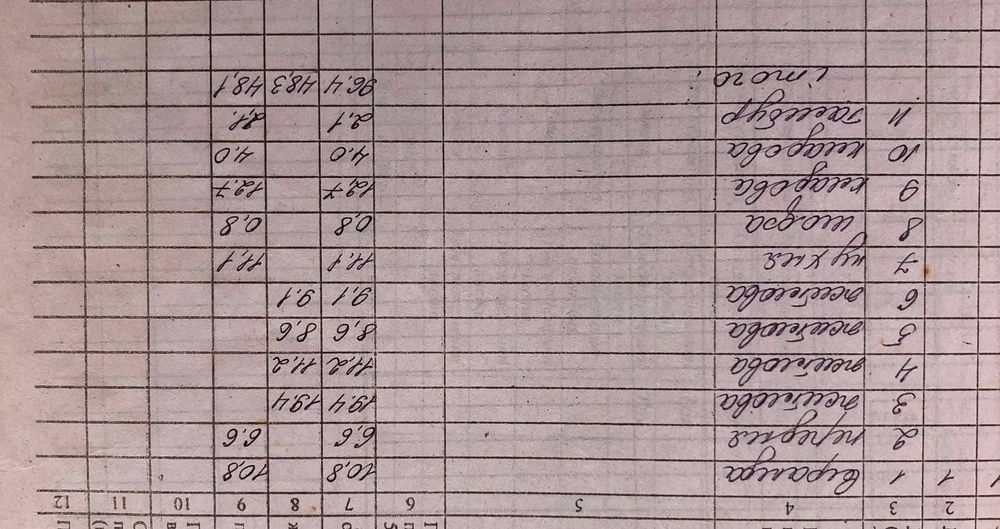 2 3 4 5 6 7 8 9 10 11 12
1 1 веранда 10,8 10,8
2 передня 6,6 6,6
3 житлова 19.4 19.4
4 житлова 11.2 11.2
5 житлова 8,6 8,6
6 житлова 9.1 9.1
7 кухня 11,1 11,1
8 шафа 0,8 0,8
9 кладова 12.7 12.7
10 кладова 4.0 4.0
11 тамбур 2,1 2,1
і того: 96.4 48,3 48,1